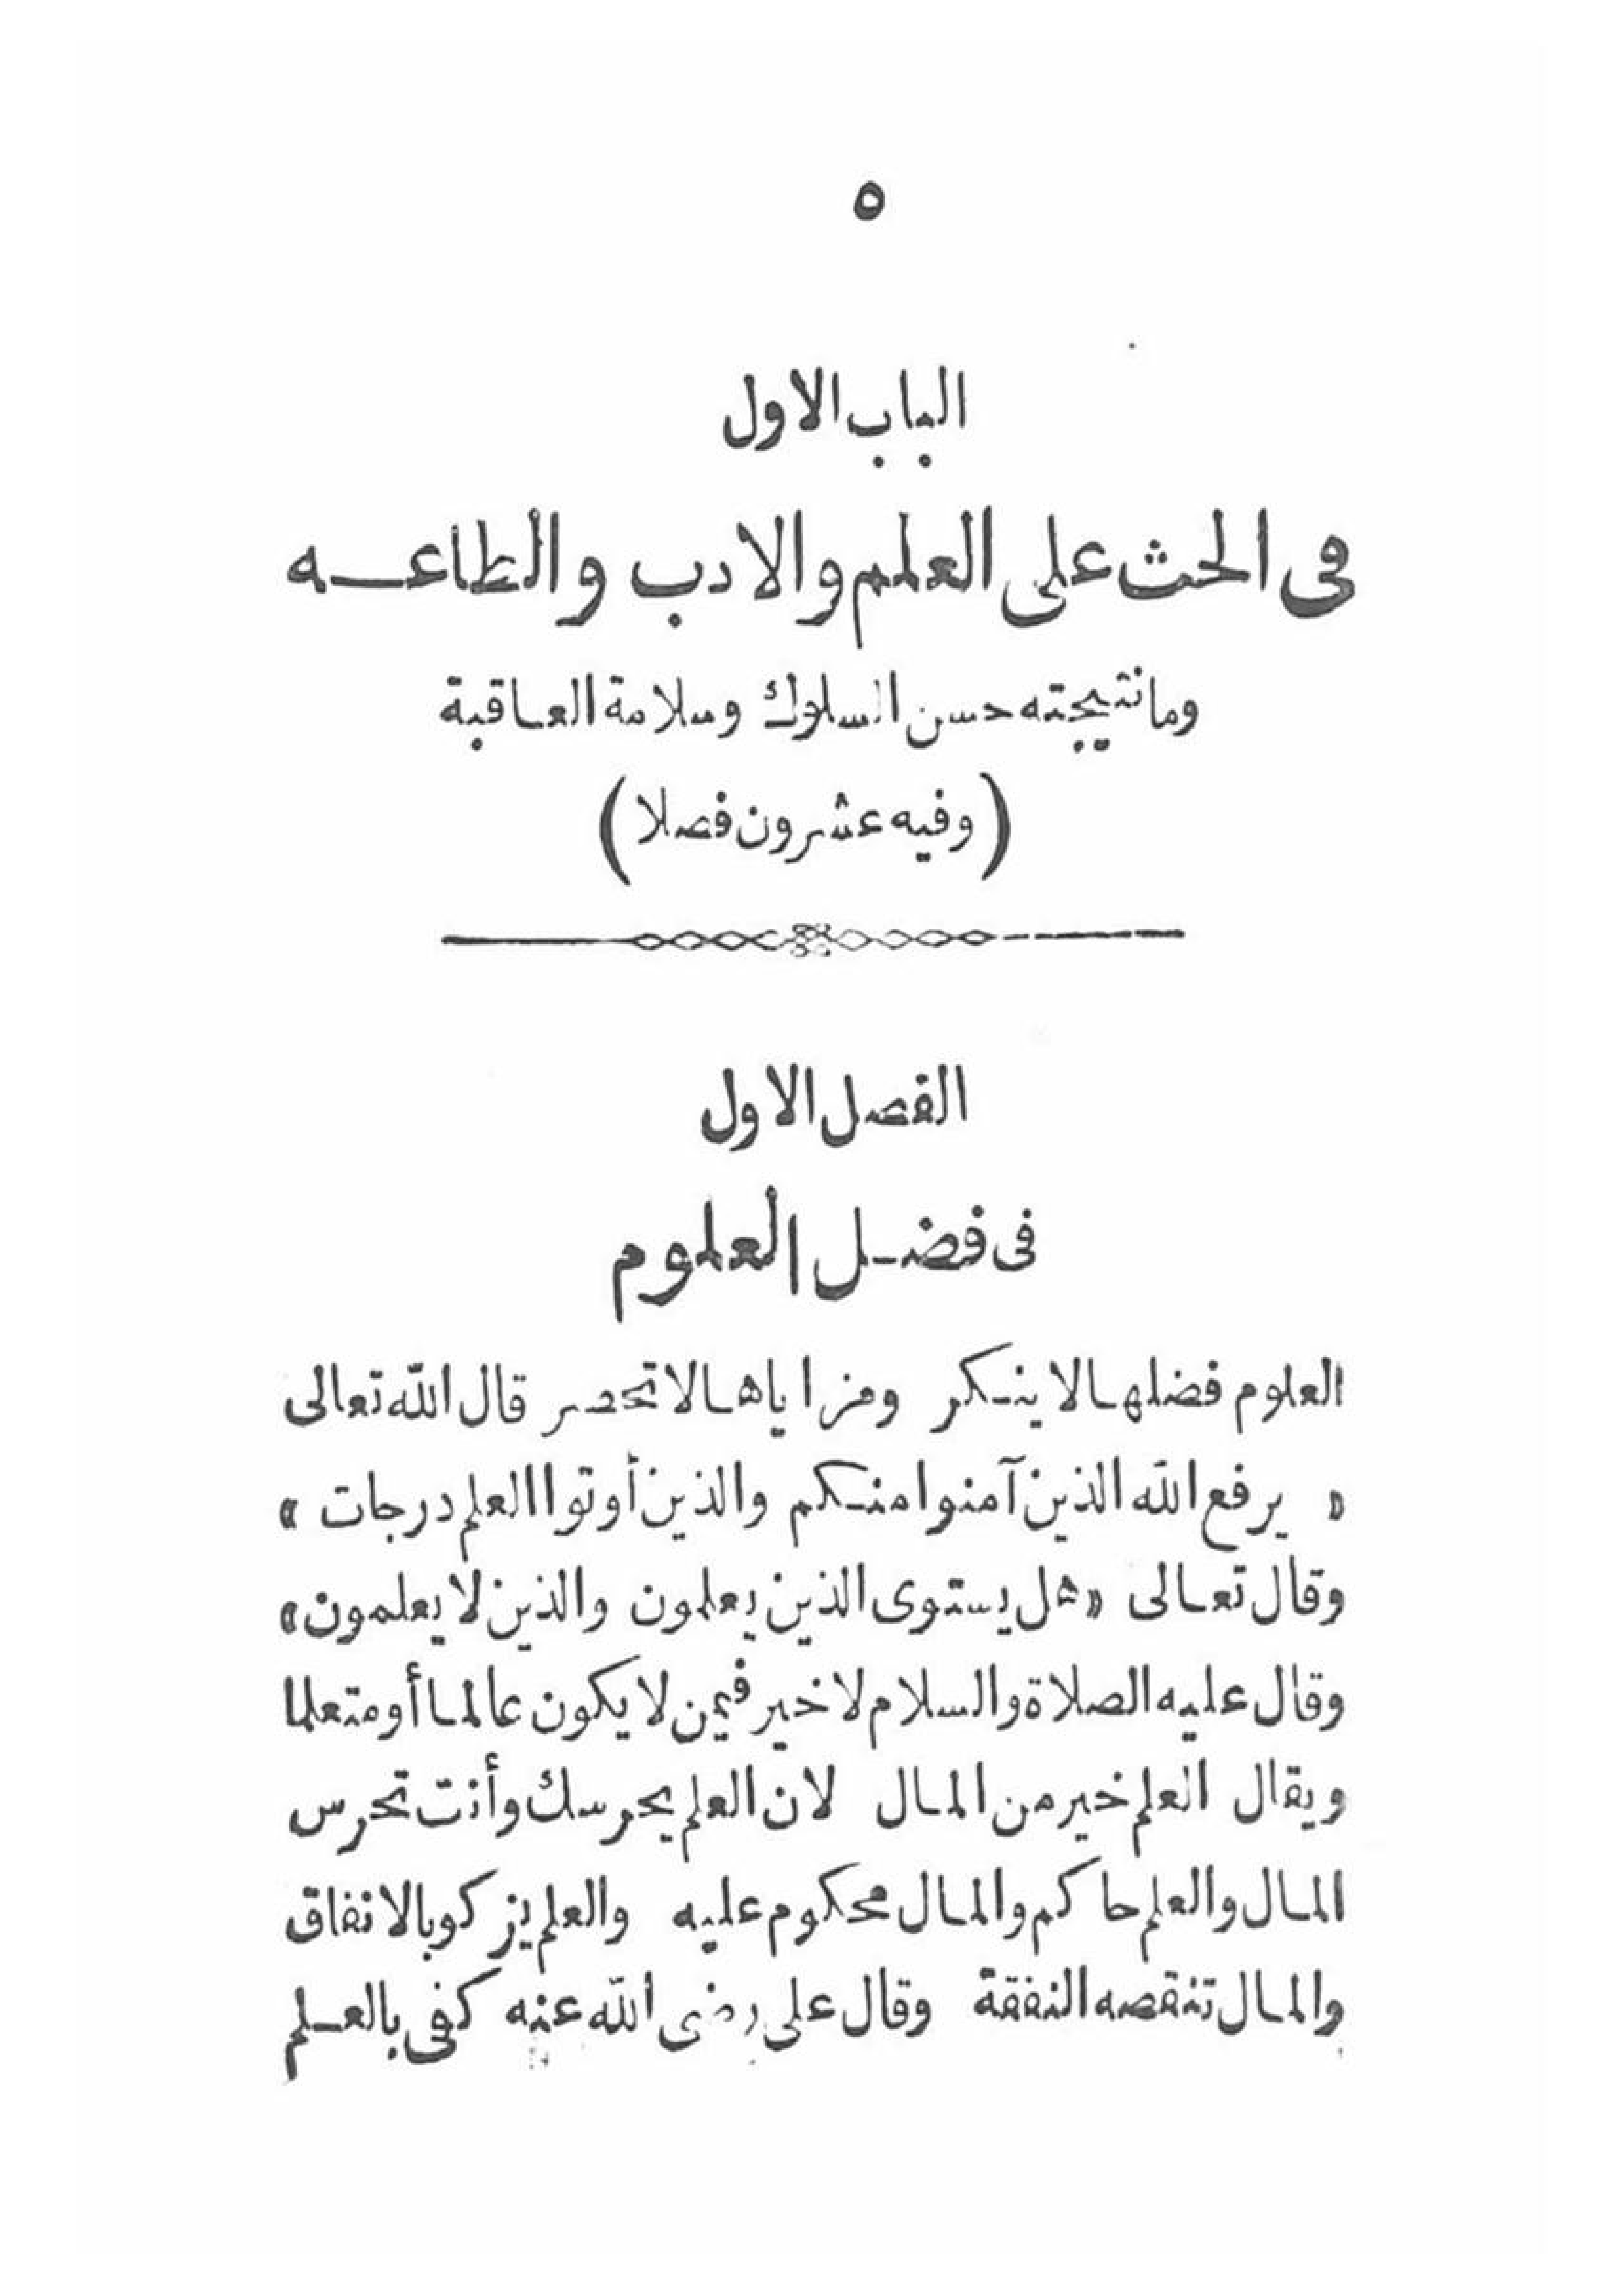 ٥
الباب الاول
فى الحث على العلم والادب والطاعه
وما نتيجته حسن السلوك وسلامة العاقبة
(وفيه عشرون فصلا)
الفصل الاول
فى فضل العلوم
العلوم فضلها لا ينكر ومزاياها لا تحصر قال الله تعالى
« يرفع الله الذين آمنوا منكم والذين أوتوا العلم درجات »
وقال تعالى «هل يستوى الذين يعلمون والذين لا يعلمون»
وقال عليه الصلاة والسلام لا خير فيمن لا يكون عالما أو متعلما
ويقال العلم خير من المال لان العلم يحرسك وأنت تحرس
المال والعلم حاكم والمال محكوم عليه والعلم يزكو بالانفاق
والمال تنقصه النفقة وقال على رضى الله عنه كفى بالعلم